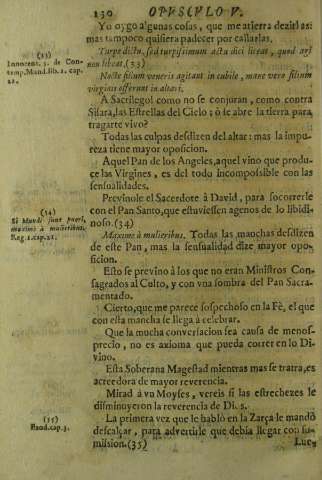 130 OPVSCVLO V.
Yo oygo algunas cosas, que me atierra dezirlas:
mas tampoco quisiera padecer por callarlas.
Turpe dictu, sed turpissimum acta dici liceat, quod agi
non libeat.(33)
Nocte filium veneris agitant in cubile, mane vero filium
virginis offerunt in altari.
A Sacrilego! como no se conjuran, como contra
Sisara, las Estrellas del Cielo; ò se abre la tierra para
tragarte vivo?
Todas las culpas desdizen del altar: mas la impu-
reza tiene mayor oposicion.
Aquel Pan de los Angeles, aquel vino que produ-
ce las Virgines, es del todo incompossible con las
sensualidades.
Previnole el Sacerdote à David, para socorrerle
con el Pan Santo, que estuviessen agenos de lo libidi-
noso.(34)
Maximè à mulieribus. Todas las manchas desdizen
de este Pan, mas la sensualidad dize mayor opo-
sicion.
Esto se previno à los que no eran Ministros Con-
sagrados al Culto, y con vna sombra del Pan Sacra-
mentado.
Cierto, que me parece sospechoso en la Fè, el que
con esta mancha se llega à celebrar.
Que la mucha conversacion sea causa de menos-
precio, no es axioma que pueda correr en lo Di-
vino.
Esta Soberana Magestad mientras mas se trata, es
acreedora de mayor reverencia.
Mirad à vn Moyses, vereis si las estrechezes le
disminuyeron la reverencia de Dios.
La primera vez que le hablò en la Zarça le mandò
descalçar, para advertirle que debia llegar con su-
mission.(35) Lue-
(33)
Innocent. 3. de Con-
temp. Mand. lib. 2. cap.
22.
(34)
Si Mundi sunt pueri,
maximè à mulieribus.
Reg. 1. cap. 21.
(35)
Exod. cap. 3.